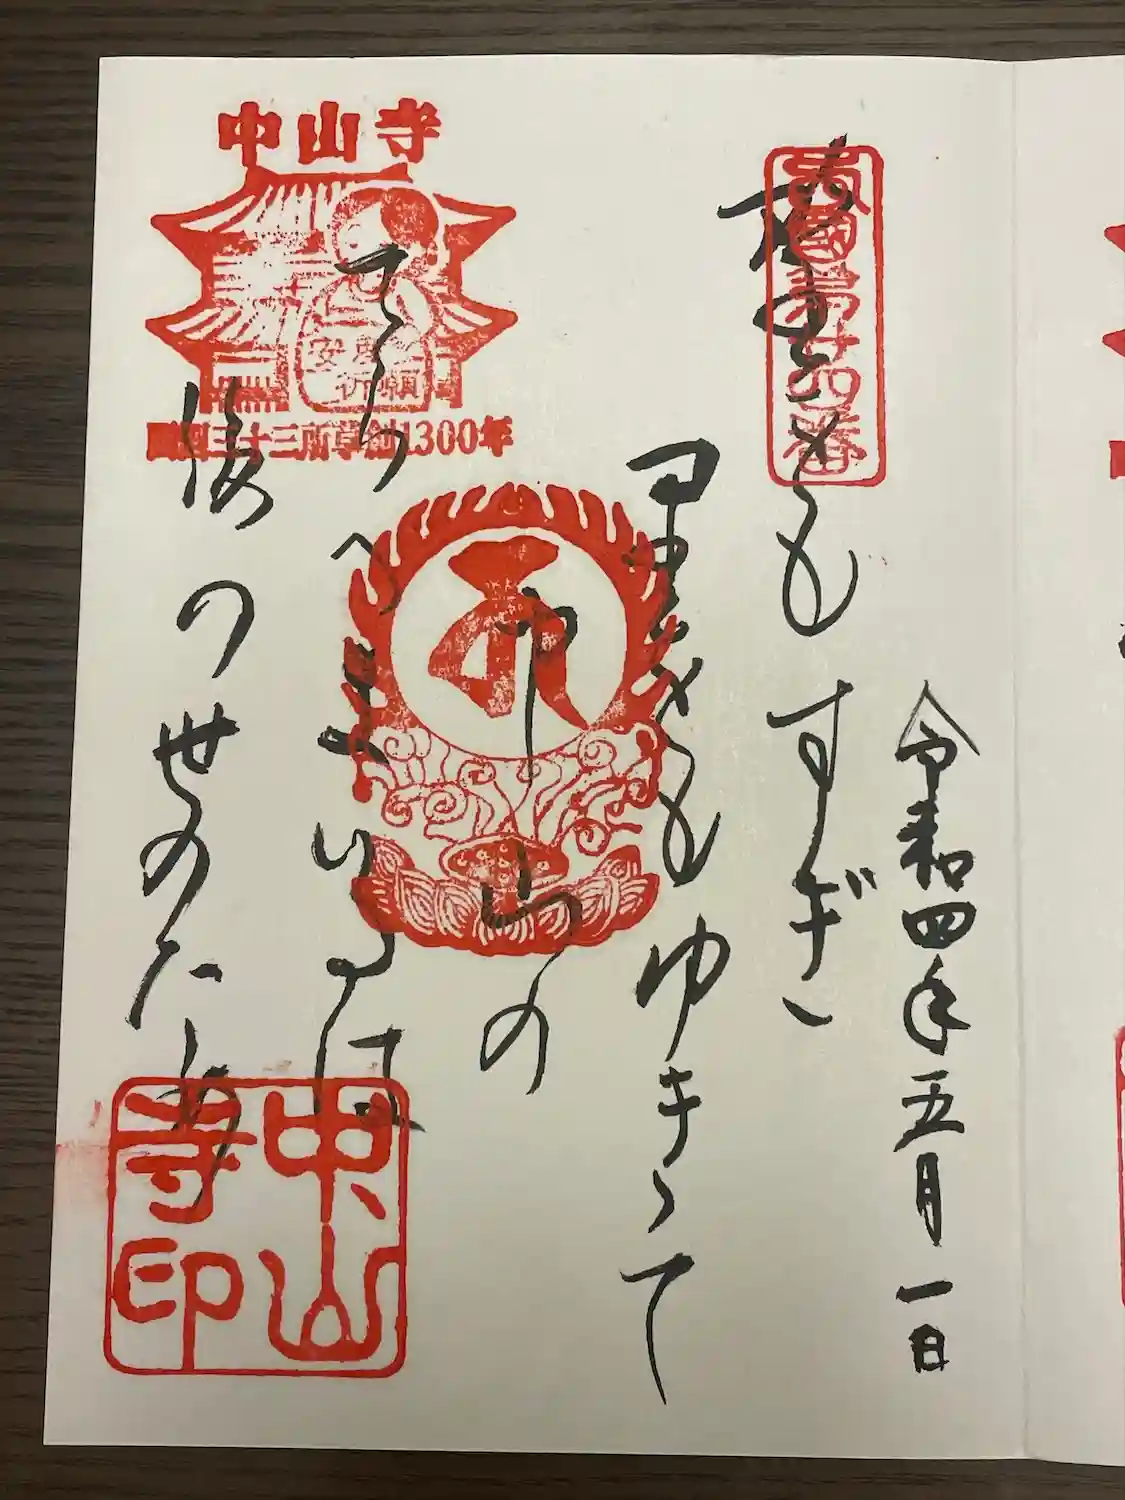 令和四年五月一日
西國第廿四番
野をもすぎ
里をもゆきて
中山の
てらへまいるは
後の世のため
中山寺
安産
祈願
西国三十三所草創1300年
中山
寺印